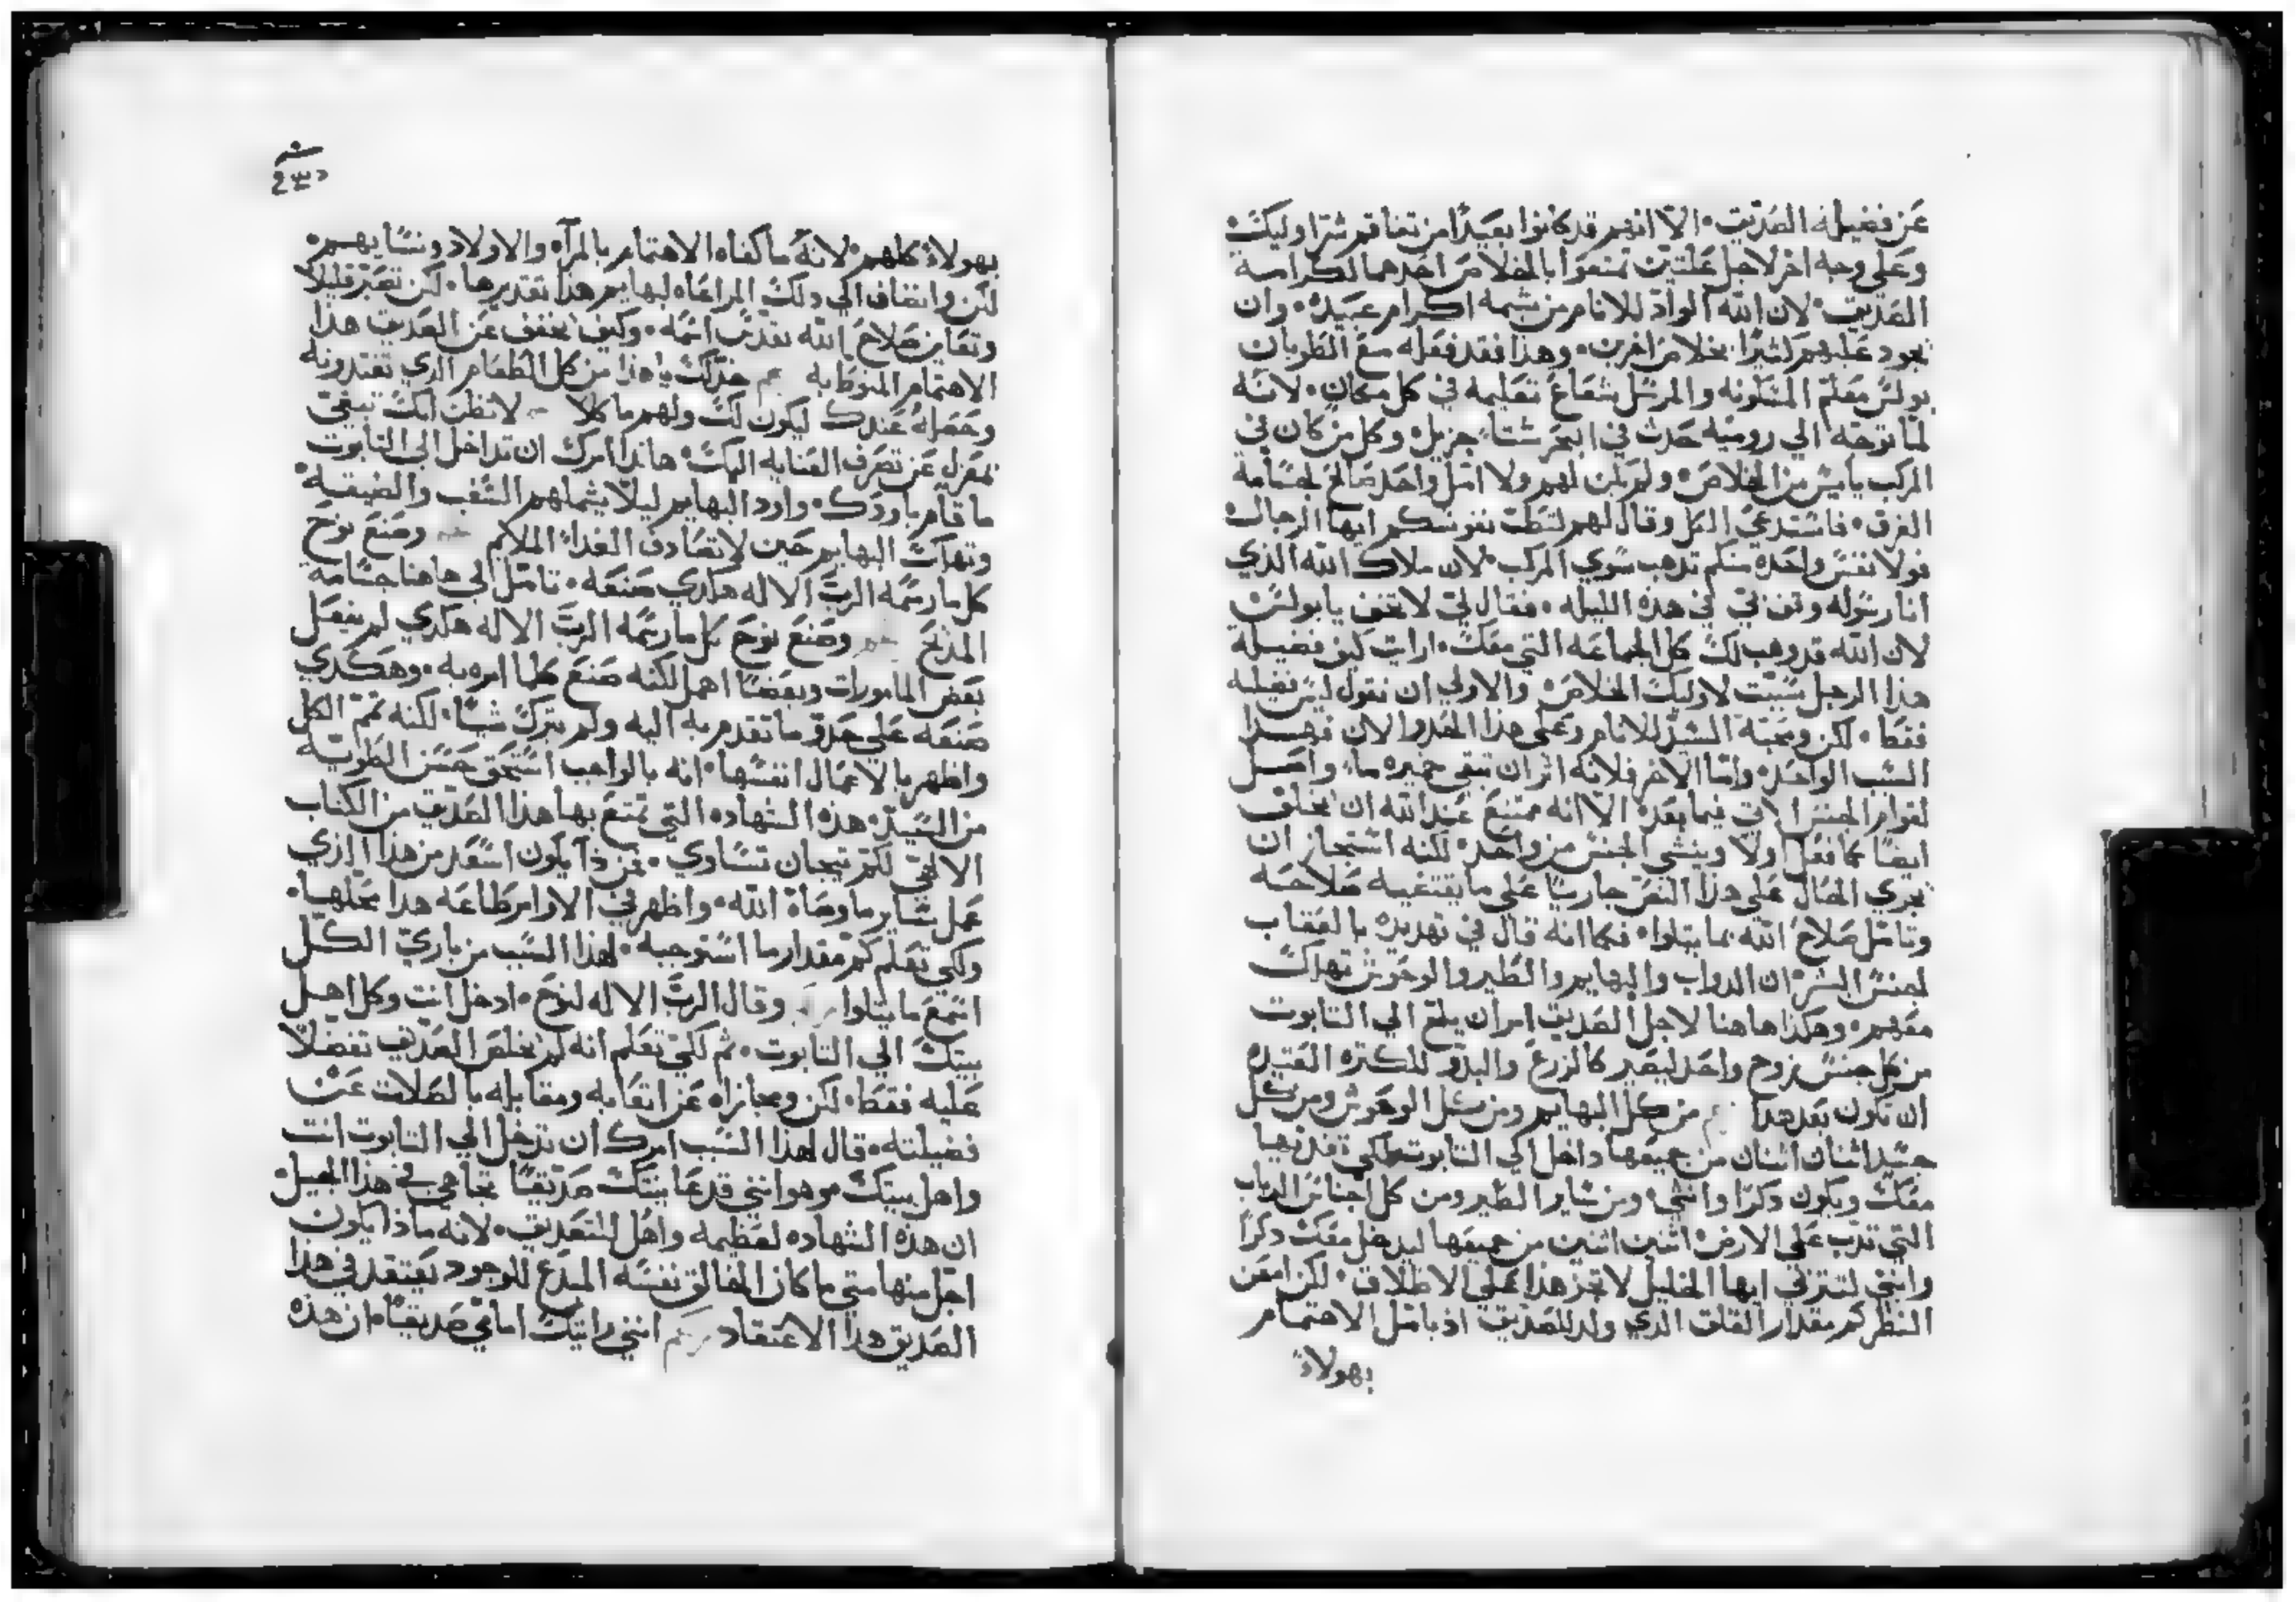 عن فضيلة الصديق٠ الا انهم قد كانوا بعيدا من تفاقم شرا وليك
وعلى وجه اخر لاجل علتين تمتعوا بالخلاص احدهما لكرامة
الصديق٠ لان الله الواد للانام من شيمه اكرام عبيده٠ وان
يجود عليهم كثيرا بخلاص اخرين٠ وهذا فقد فعله مع الطوبان
بولس معلم المسكونه والمرسل شعاع تعليمه في كل مكان٠ لانه
لما توجه الي روميه حدث في البحر شتاء جزيل٠ وكل من كان في
المركب يايس من الخلاص٠ ولم يكن لهم ولا امل واحد صالح لجسامة
الغرق٠ فاستدعي الكل وقال لهم لتطب نفوسكم ايها الرجال
فولا نفس واحدة منكم تدهب سوي المركب٠ لان ملاك الله الذي
انا رسوله وقف بي في هذه الليله٠ فقال لي لا تخف يا بولس
لان الله قد وهب لك كل الجماعه التي معك٠ ارايت كيف فضيلة
هذا الرجل سببت لاوليك الخلاص٠ والاولي ان نقول ليس فضيلته
فقط٠ لكن ومحبة السيد للانام وعلى هذا الحدو الان فهذا
السبب الواحد٠ واما الاخر فلانه اثر ان تبقي خميره ما٠ واصل
لقوام الجنس الاتي فيما بعد٠ الا انه ممتنع عند الله ان يخلق
ايضا كما فعل اولا وينشي الجنس من واحد٠ لكنه استجاز ان
يجري الحال على هذا النص جاريا على ما يقتضيه صلاحه
وتامل صلاح الله بما يتلوا٠ فكما انه قال في تهديده بالعقاب
لجنس البشر ان الدواب والبهايم والطير والوحوش تهلك
معهم٠ وهكذا هاهنا لاجل الصديق امر ان يلج الي التابوت
من كل جنس زوج واحد ليصير كالزرع والبذر للكثره العتيده
ان تكون بعد هدا من كل البهايم ومن كل الوحوش ومن كل
جسد اثنان اثنان من جميعها داخل الي التابوت لكي تغذيها
معك ويكون ذكرا وانثي٠ ومن ساير الطير ومن كل اجناس الدباب
التي تدب على الارض٠ اثنين اثنين من جميعها ليدخل معك ذكرا
وانثي لتنرزق ايها الخليل لا تجز هذا على الاطلاق٠ لكن امعن
النظر كم مقدار القلق الذي ولد للصديق اذ يامل الاهتمام
بهولاء
بهولاء كلهم٠ لانه ما كفاه الاهتمام بالمرآه والاولاد ونسايهم٠
لكن وانضاف الي دلك المراعاه لبهايم هذا تقديرها٠ لكن تصبر قليلا
وتعاين صلاح الله بقدر ايمه٠ وكيف يخفف عن الصديق هذا
الاهتمام المنوط به خذ لك يا هذا من كل الطعام الدي تغتدونه
وحصله عندك ليكون لك ولهم ماكلا لا تظن انك تبقي
بمعزل عن تصرف العنايه اليك٠ هانذا امرك ان تداخل الى التابوت
ما قام باودك٠ واود البهايم ليلا يشملهم السغب والضيقه
وتهلك البهايم حين لا تصادف الغداء الملايم وصنع نوح
كل ما رسمه الرب الاله هكدي صنعه٠ تامل الي هاهنا جسامة
المدبح وصنع نوح كل ما رسمه الرب الاله هكدي لم يفعل
بعض المامورات وبعضا اهمل لكنه صنع كلما امره به٠ وهكدي
صنعه علي حدو ما تقدم به اليه ولم يترك شيا٠ لكنه تمم الكل
واظهر بالاعمال انفسها٠ انه بالواجب استحق حسن الطويه
من السيد٠ هذه الشهاده التي تمتع بها هذا الصديق من الكتاب
الالهي لكم تيجان تساوي٠ فمن ذا يكون اسعد من هذا الذي
عمل ساير ما وصاه الله٠ واظهر في الاوامر طاعه هدا محلها٠
ولكي تعلم كم مقدار ما استوجبه٠ لهذا السبب من باري الكل
اسمع ما يتلوا وقال الرب الاله لنوح٠ ادخل انت وكل اهل
بيتك الي التابوت٠ ثم لكي تعلم انه لم يخلص الصديق تفضلا
عليه فقط٠ لكن ومجازاه عن اتعابه ومقابله بالصلات عن
فضيلته٠ قال لهذا السبب امرك ان تدخل الي التابوت انت
واهل بيتك٠ وهو انني قد عاينتك صديقا تجاهي في هذا الجيل٠
ان هذه الشهاده لعظيمه واهل للتصديق٠ لانه ماذا يكون
اجل منها متي ما كان الخالق نفسه المبدع للوجود يعتقد في هدا
الصديق هدا الاعتقاد انني رايتك امامي صديقا٠ ان هذه